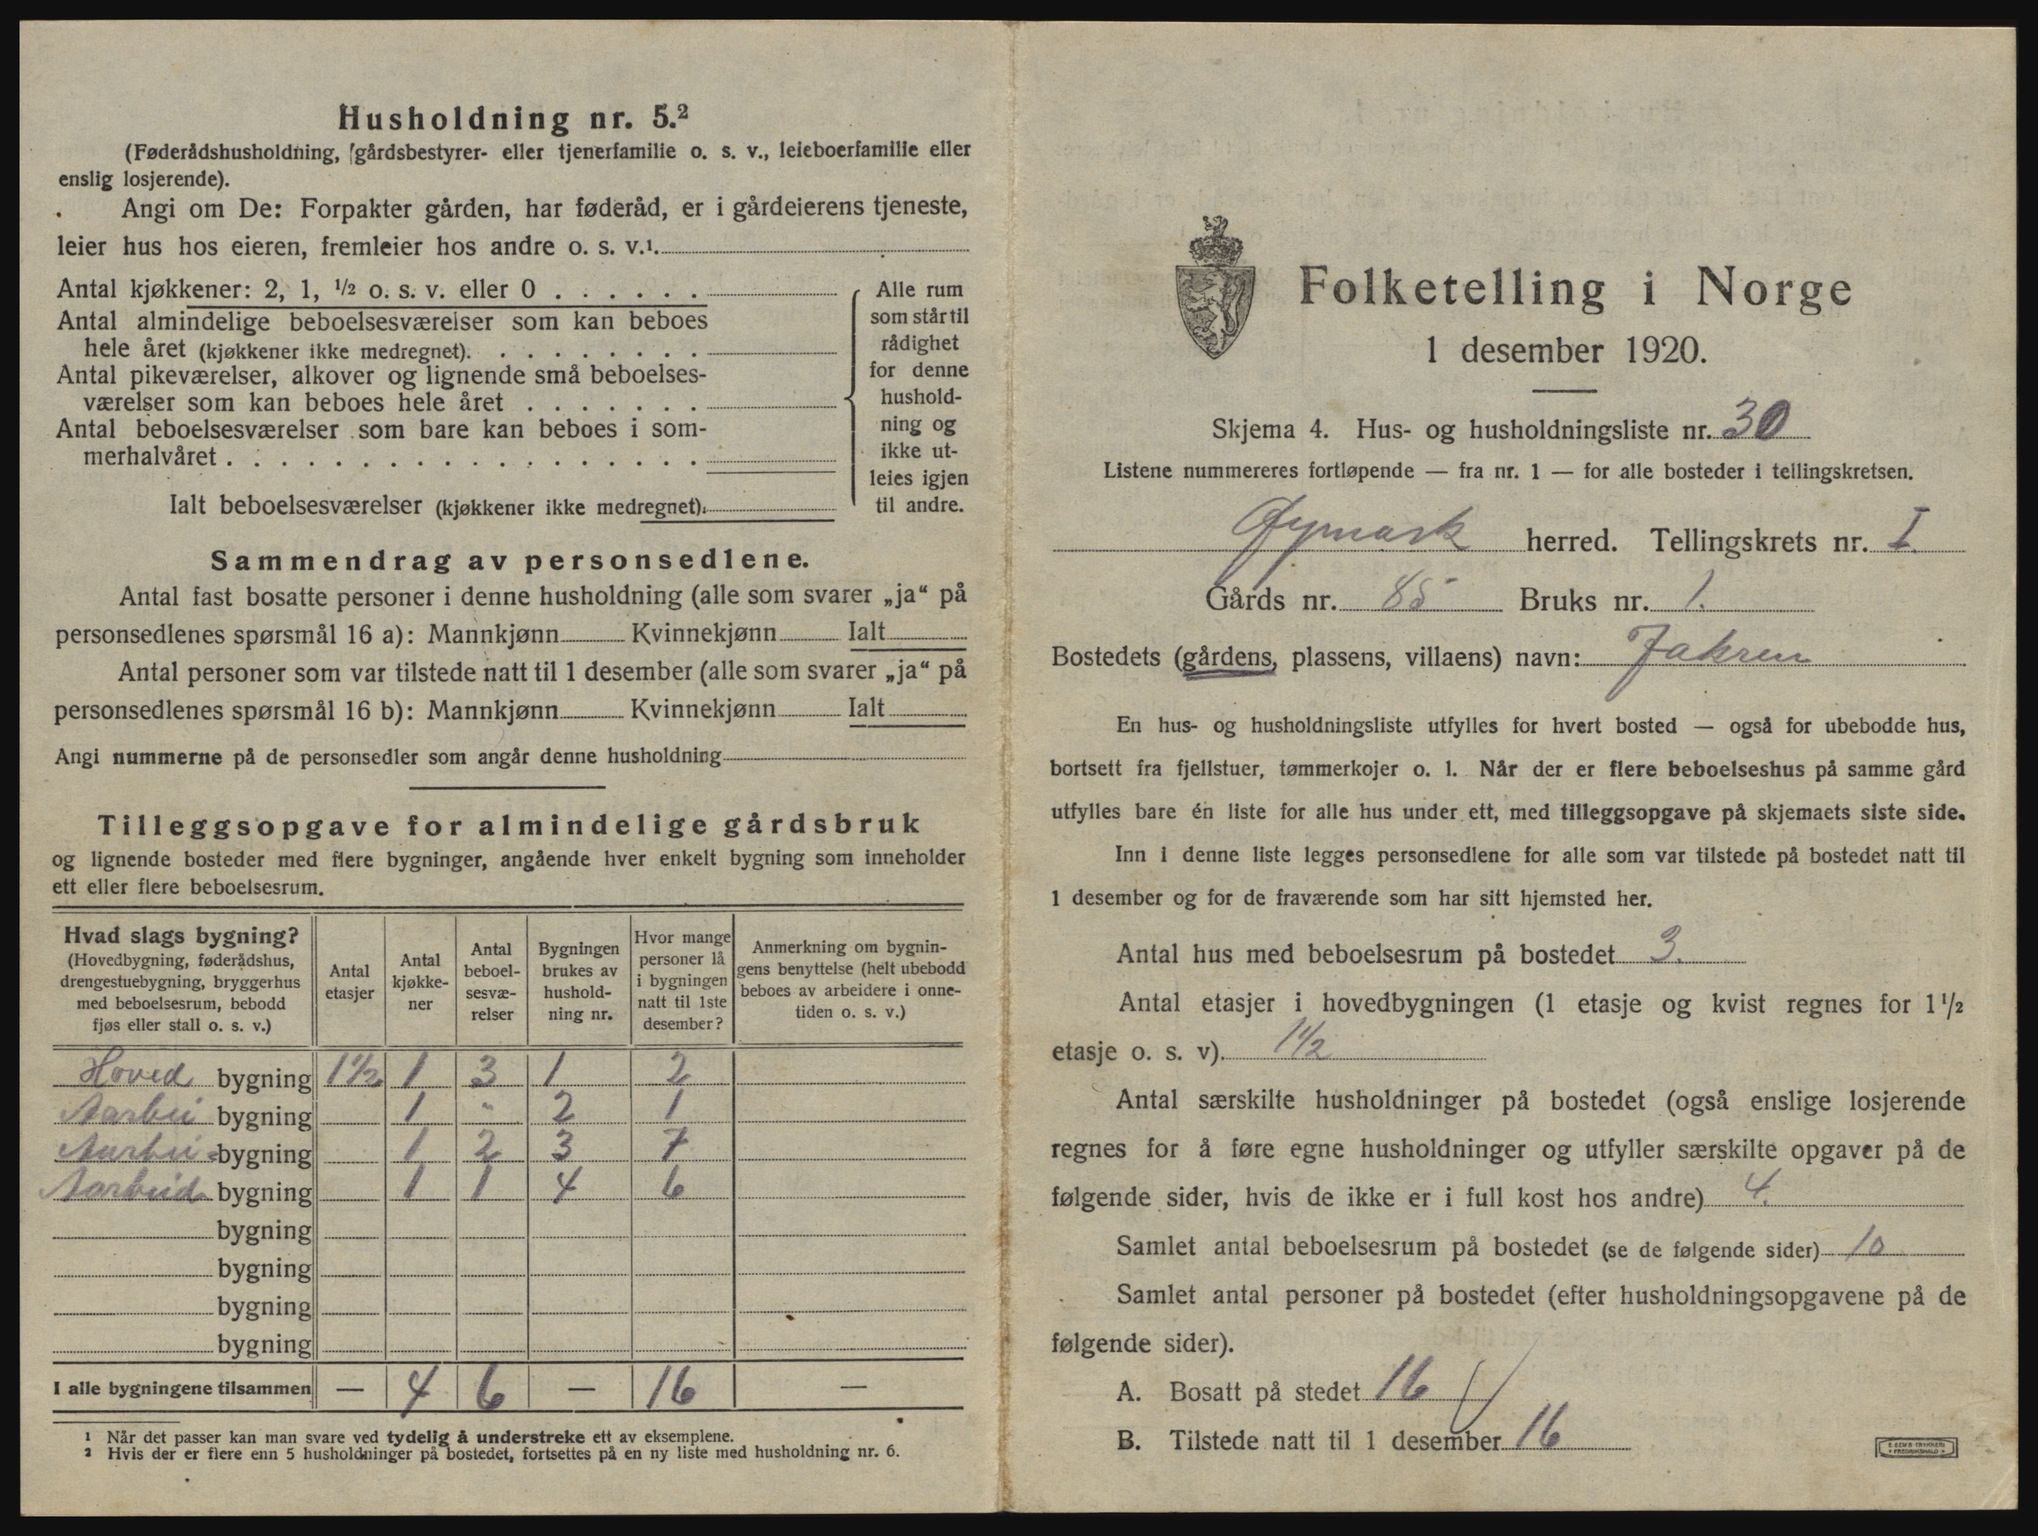 Husholdning nr. 5.²
(Føderådshusholdning, gårdsbestyrer- eller tjenerfamilie o. s. v., leieboerfamilie eller
enslig losjerende).
Angi om De: Forpakter gården, har føderåd, er i gårdeierens tjeneste,
leier hus hos eieren, fremleier hos andre o. s. v.¹
Antal kjøkkener: 2, 1, ½ o. s. v. eller 0 . . . . . .
Antal almindelige beboelsesværelser som kan beboes
hele året (kjøkkener ikke medregnet). . . . . . . . .
Antal pikeværelser, alkover og lignende små beboelses-
værelser som kan beboes hele året . . . . . . .
Antal beboelsesværelser som bare kan beboes i som-
merhalvåret . . . . . . . . . . . . . . . . . .
Ialt beboelsesværelser (kjøkkener ikke medregnet).
Alle rum
som står til
rådighet
for denne
hushold-
ning og
ikke ut-
leies igjen
til andre.
Sammendrag av personsedlene.
Antal fast bosatte personer i denne husholdning (alle som svarer „ja“ på
personsedlenes spørsmål 16 a): Mannkjønn Kvinnekjønn Ialt
Antal personer som var tilstede natt til 1 desember (alle som svarer „ja“ på
personsedlenes spørsmål 16 b): Mannkjønn Kvinnekjønn Ialt
Angi nummerne på de personsedler som angår denne husholdning
Tilleggsopgave for almindelige gårdsbruk
og lignende bosteder med flere bygninger, angående hver enkelt bygning som inneholder
ett eller flere beboelsesrum.
Hvad slags bygning?
(Hovedbygning, føderådshus,
drengestuebygning, bryggerhus
med beboelsesrum, bebodd
fjøs eller stall o. s. v.)
Antal
etasjer
Antal
kjøkke-
ner
Antal
beboel-
sesvæ-
relser
Bygningen
brukes av
hushold-
ning nr.
Hvor mange
personer lå
i bygningen
natt til 1ste
desember?
Anmerkning om bygnin-
gens benyttelse (helt ubebodd
beboes av arbeidere i onne-
tiden o. s. v.)
Hoved bygning 1½ 1 3 1 2
bygning 1 " 2 1
bygning 1 2 3 7
bygning 1 1 4 6
bygning
bygning
bygning
bygning
I alle bygningene tilsammen — 4 6 — 16 —
¹ Når det passer kan man svare ved tydelig å understreke ett av eksemplene.
² Hvis der er flere enn 5 husholdninger på bostedet, fortsettes på en ny liste med husholdning nr. 6.
Folketelling i Norge
1 desember 1920.
Skjema 4. Hus- og husholdningsliste nr. 30
Listene nummereres fortløpende — fra nr. 1 — for alle bosteder i tellingskretsen.
Øymark herred. Tellingskrets nr. I.
Gårds nr. 85 Bruks nr. 1.
Bostedets (gårdens, plassens, villaens) navn: Jahren
En hus- og husholdningsliste utfylles for hvert bosted — også for ubebodde hus,
bortsett fra fjellstuer, tømmerkojer o. l. Når der er flere beboelseshus på samme gård
utfylles bare én liste for alle hus under ett, med tilleggsopgave på skjemaets siste side.
Inn i denne liste legges personsedlene for alle som var tilstede på bostedet natt til
1 desember og for de fraværende som har sitt hjemsted her.
Antal hus med beboelsesrum på bostedet 3.
Antal etasjer i hovedbygningen (1 etasje og kvist regnes for 1½
etasje o. s. v). 1½
Antal særskilte husholdninger på bostedet (også enslige losjerende
regnes for å føre egne husholdninger og utfyller særskilte opgaver på de
følgende sider, hvis de ikke er i full kost hos andre) 4.
Samlet antal beboelsesrum på bostedet (se de følgende sider) 10
Samlet antal personer på bostedet (efter husholdningsopgavene på de
følgende sider).
A. Bosatt på stedet 16
B. Tilstede natt til 1 desember 16